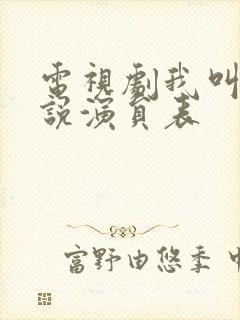 電視劇我叫
說演員表
富野由悠季